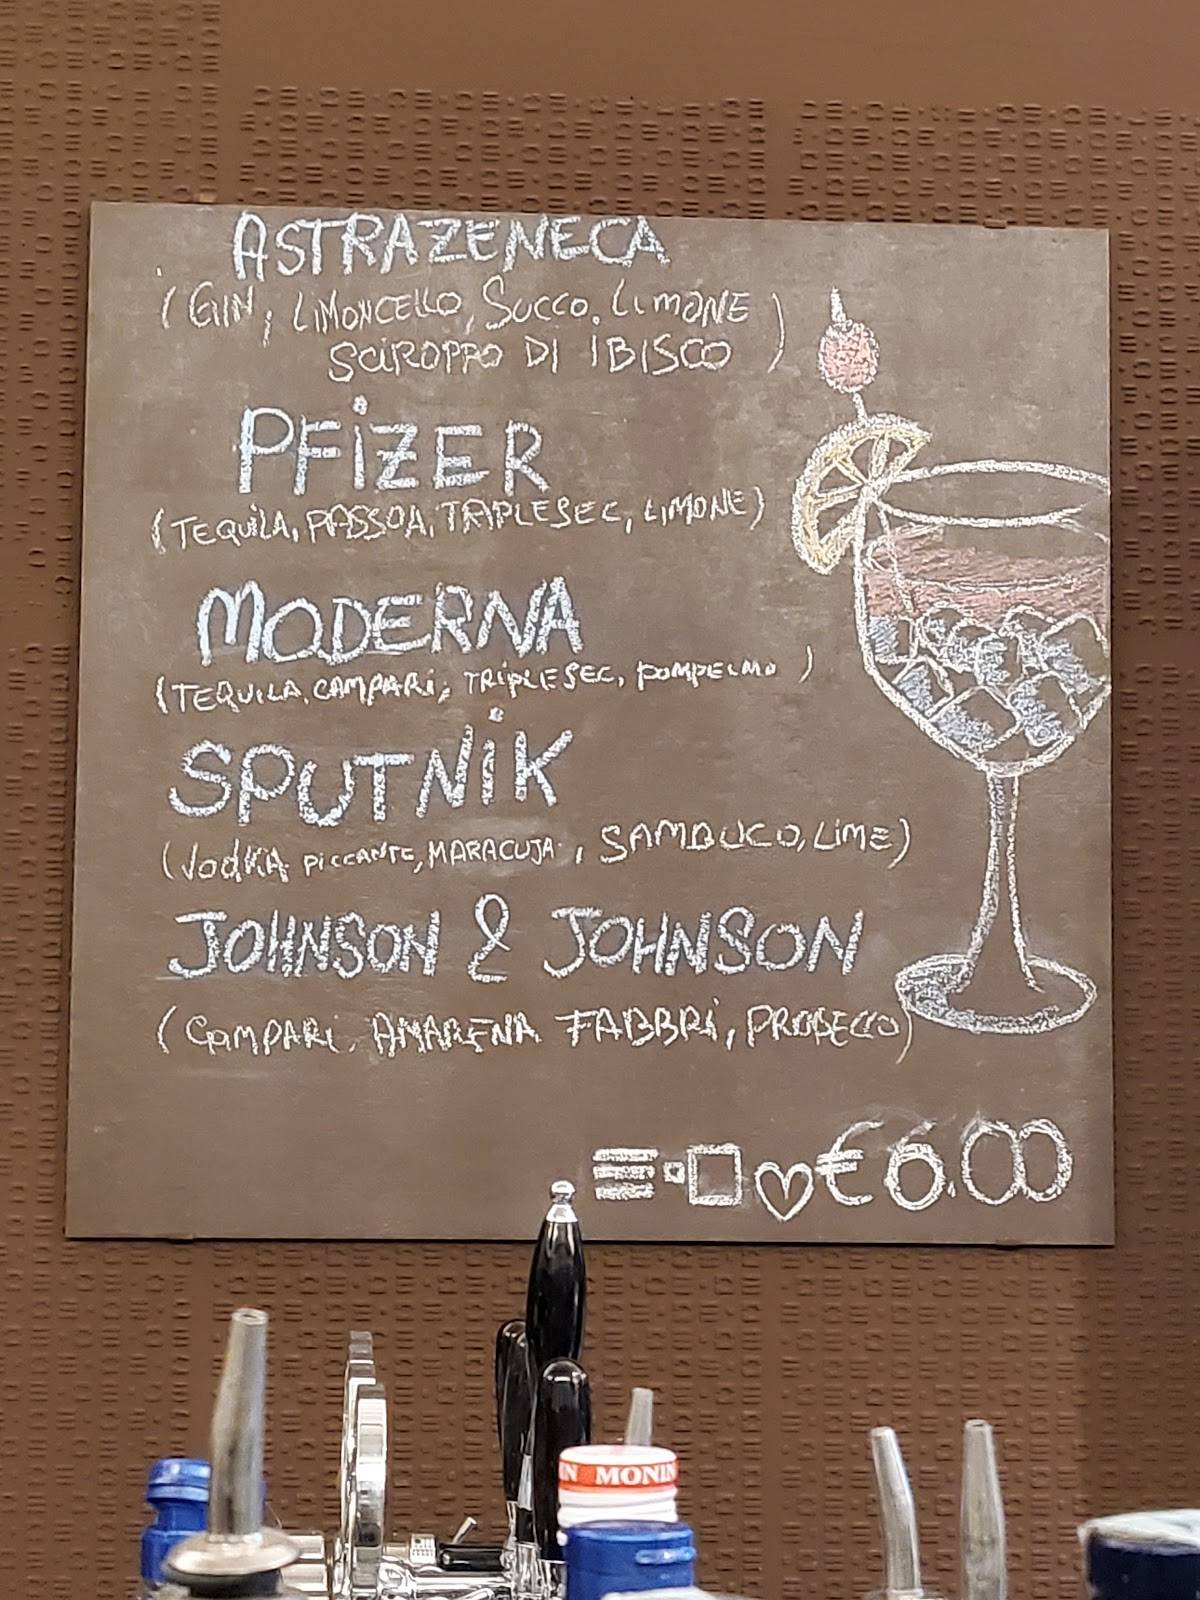 ASTRAZENECA
(GIN, LIMONCELLO, SUCCO. LIMONE
SCIROPPO DI IBISCO)
PFIZER
(TEQUILA, PASSOA, TRIPLESEC, LIMONE)
MODERNA
(TEQUILA. CAMPARI, TRIPLESEC, POMPELMO)
SPUTNIK
(VODKA PICCANTE, MARACUJA, SAMBUCO, LIME)
JOHNSON & JOHNSON
(CAMPARI. AMARENA FABBRI, PROSECCO)
€6.00
MONIN